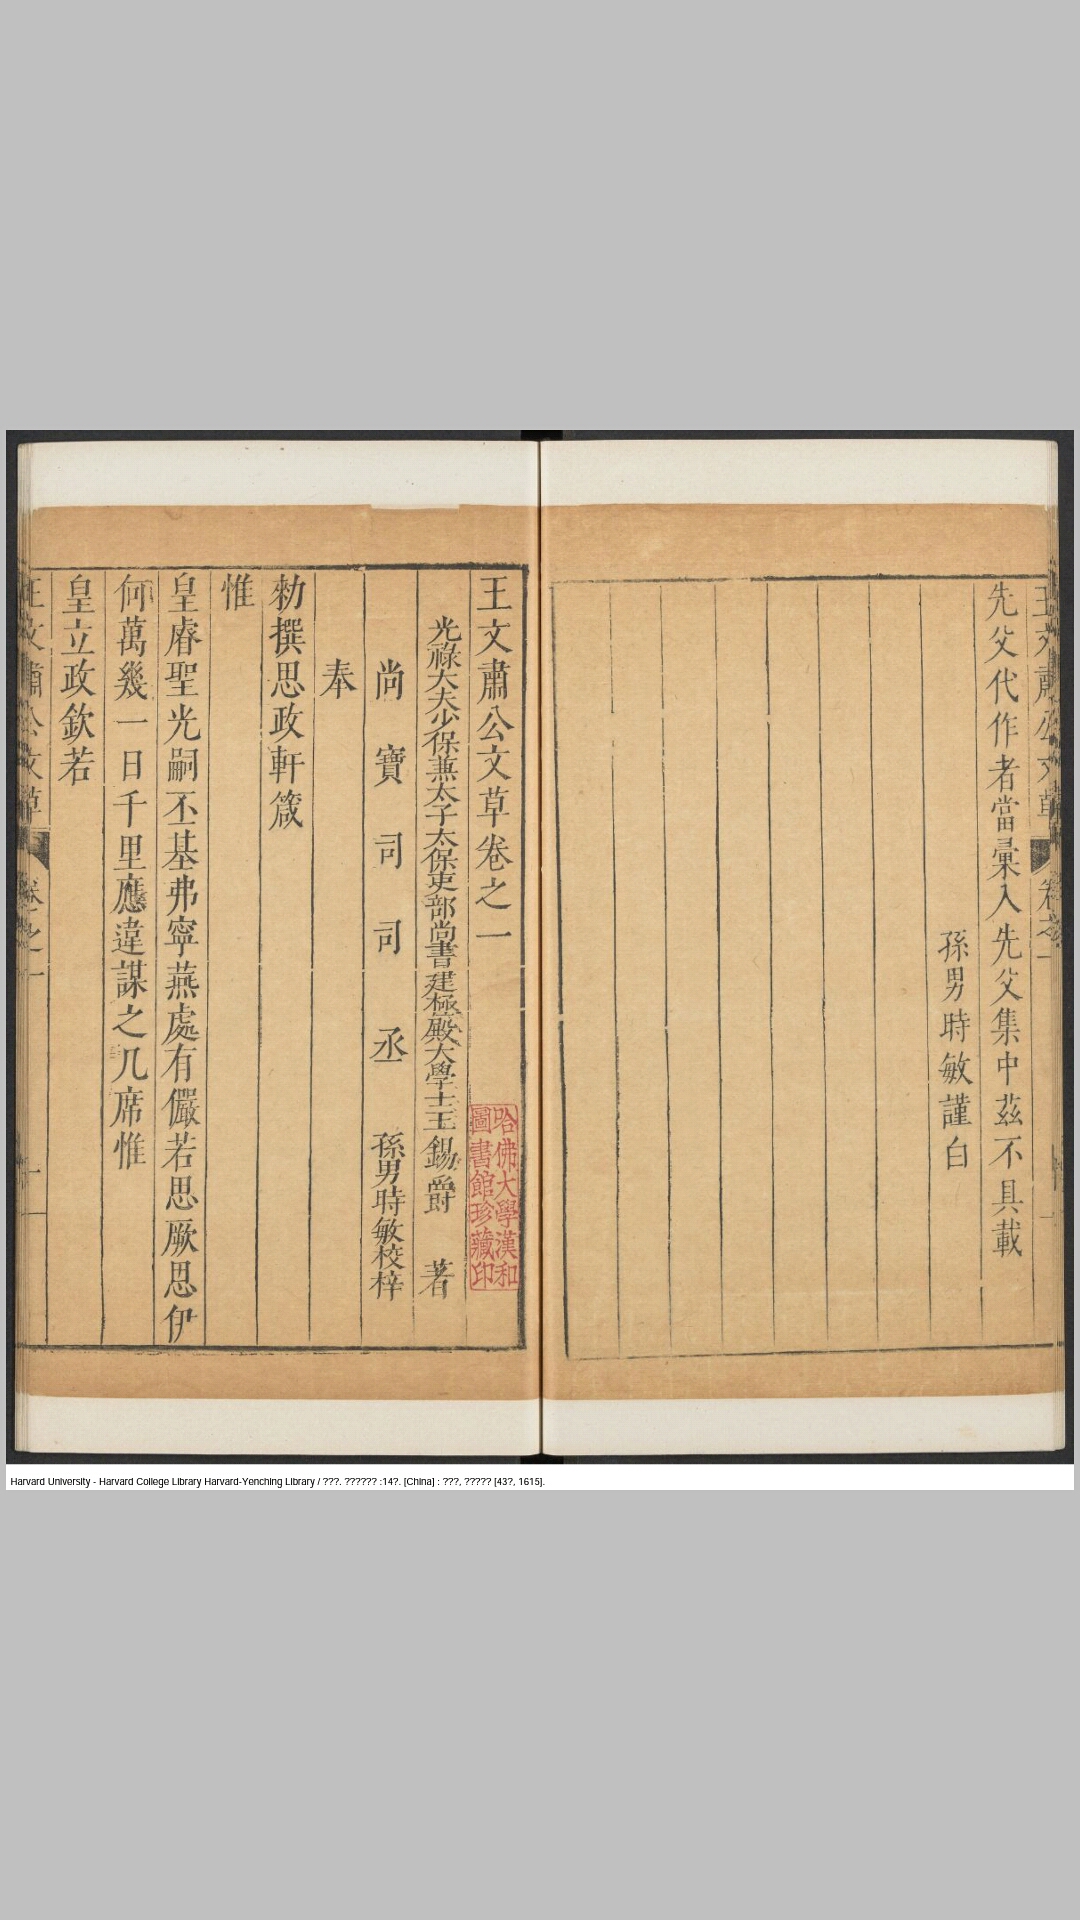 先父代作者當彙入先父集中茲不具載
孫男時敏謹白
王文肅公文草卷之一
光祿大夫少保兼太子太保吏部尚書建極殿大學士王錫爵著
尚寶司司丞孫男時敏校梓
奉
勑撰思政軒箴
惟
皇睿聖光嗣丕基弗寧燕處有儼若思厥思伊
何萬幾一日千里應違謀之几席惟
皇立政欽若
王文肅公文草 卷之一
哈佛大學漢和
圖書館珍藏印
Harvard University - Harvard College Library Harvard-Yenching Library / ???. ?????? :14?. [China] : ???, ????? [43?, 1615].